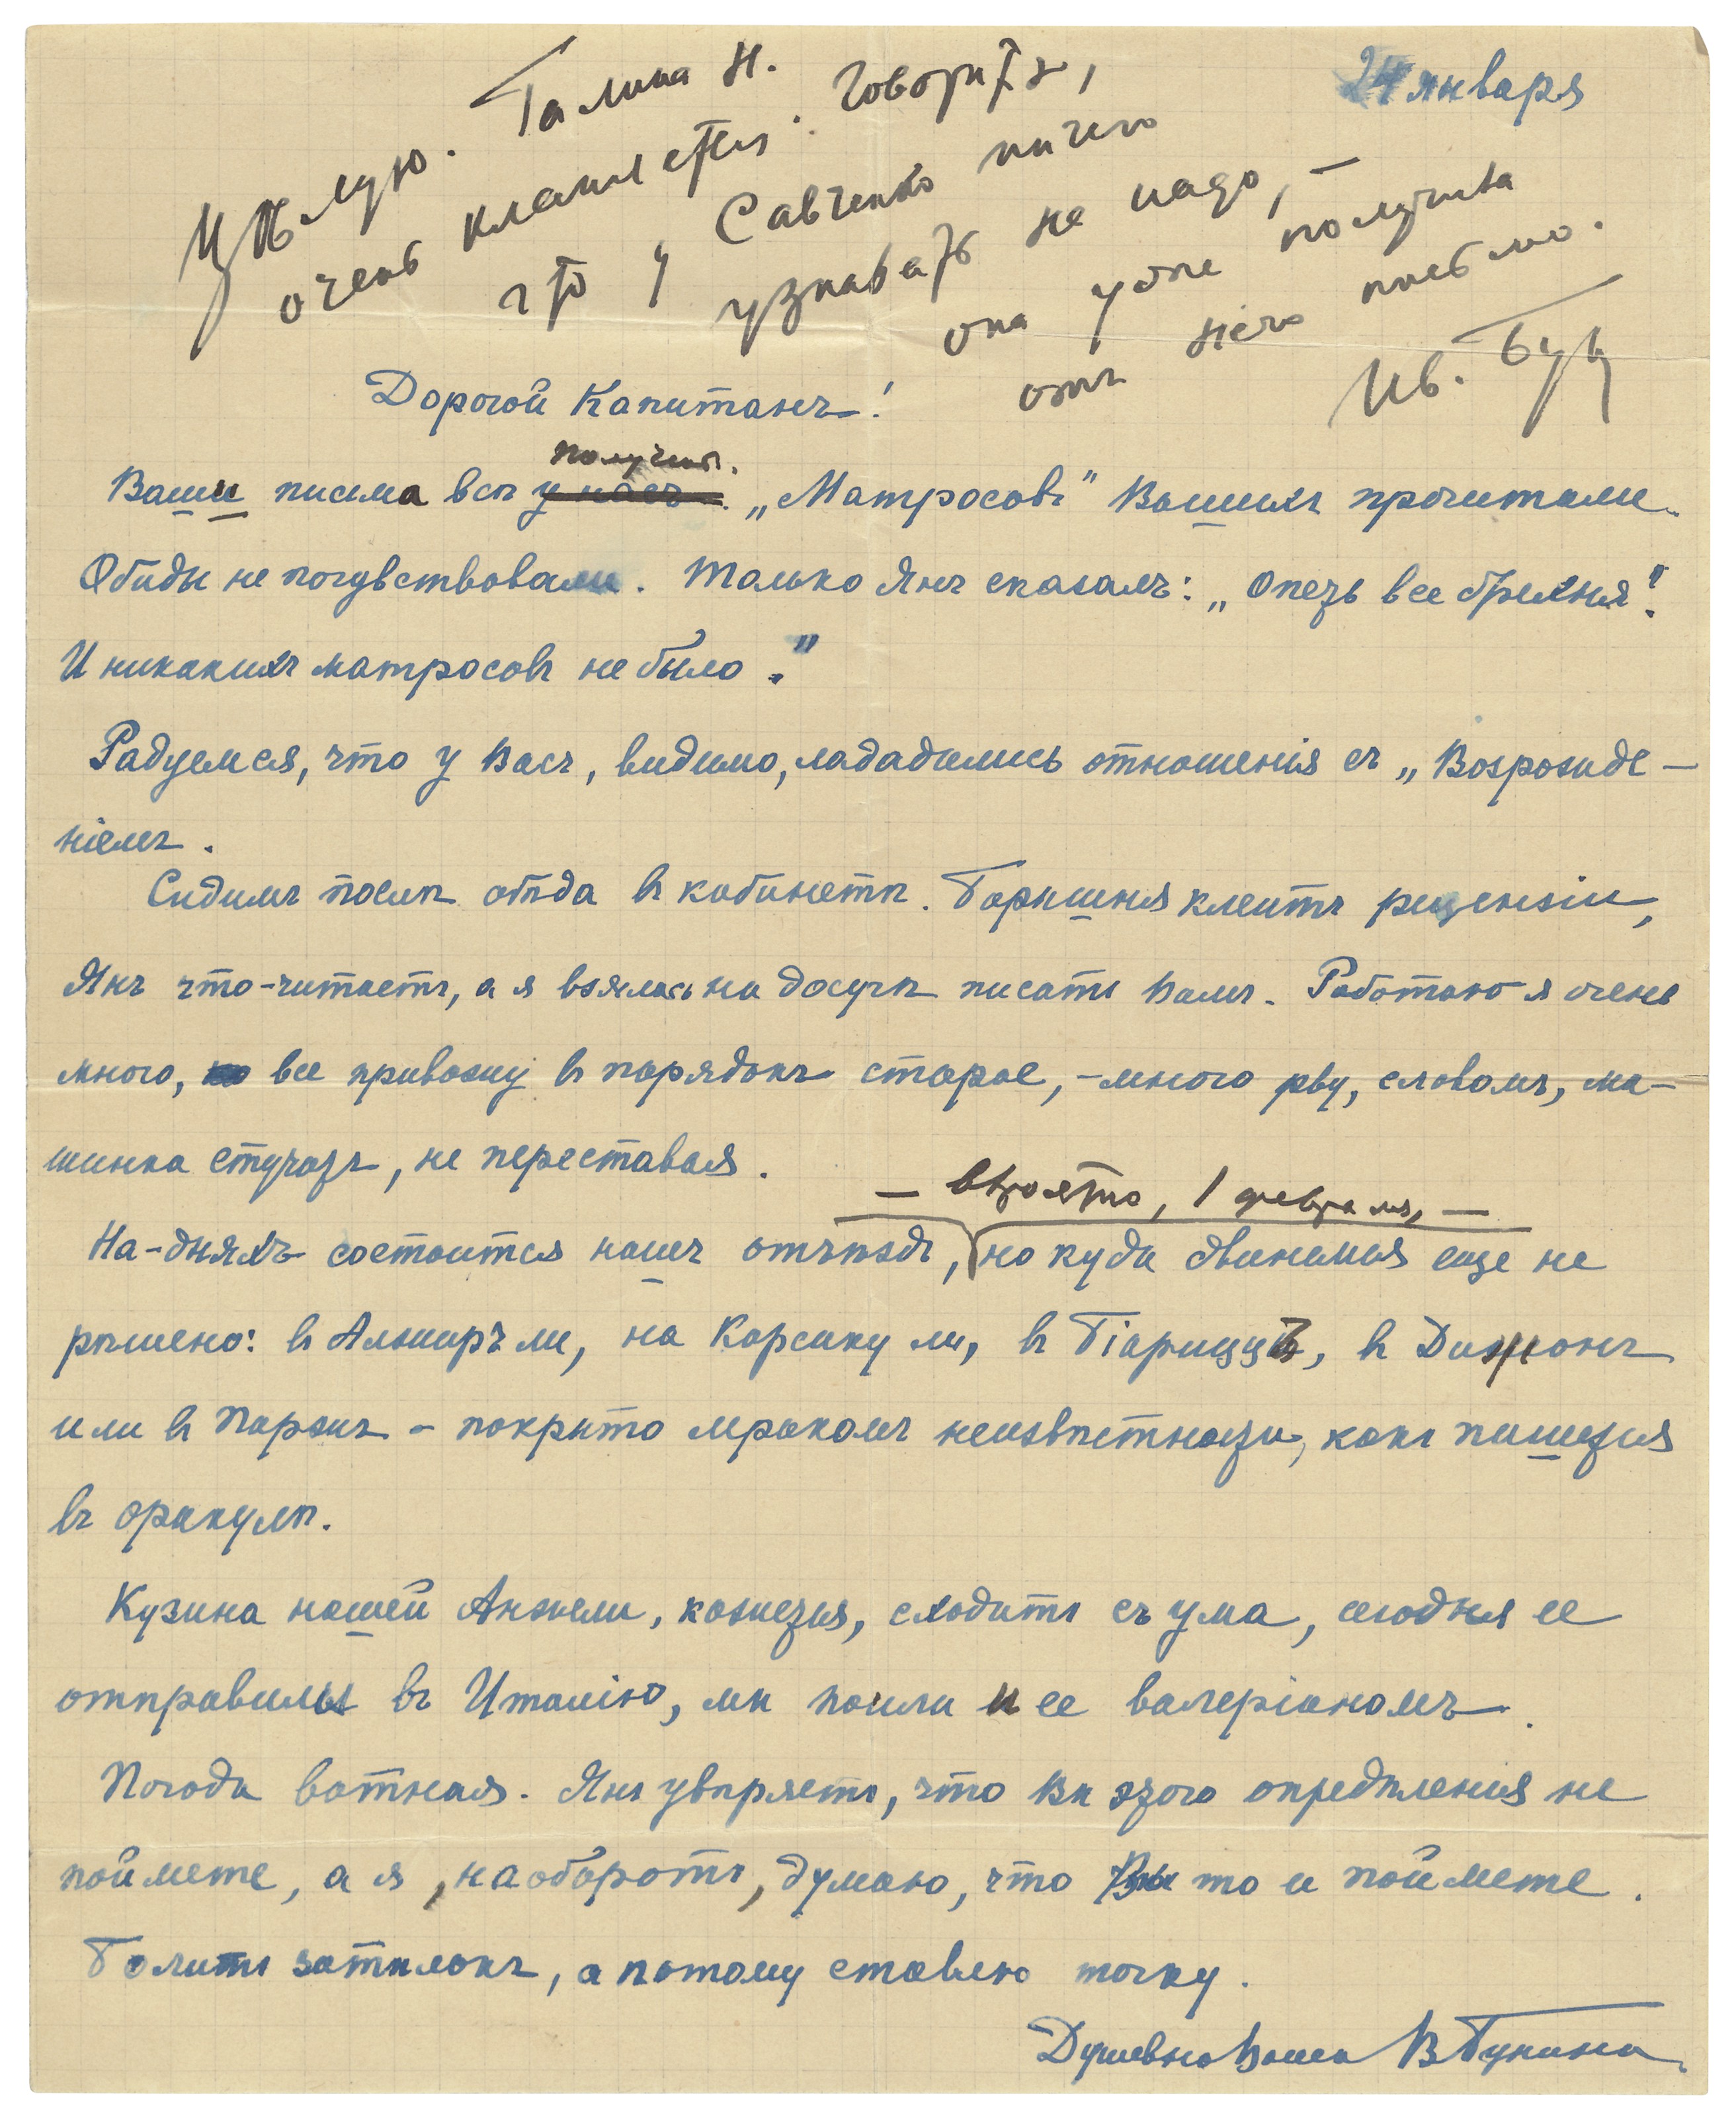 24 января
Цѣлую. Галина Н.
очень кланяется. Говоритъ,
что у Савченко ничего
узнавать не надо, —
она уже получила
отъ него письмо.
Ив. Бун
Дорогой Капитанъ!
получены.
Ваши письма всѣ у насъ. „Матросовъ" Вашихъ прочитали.
Обиды не почувствовали. Только Янъ сказалъ: „Опять все брехня!
И никакихъ матросовъ не было."
Радуемся, что у Васъ, видимо, ладились отношенія съ „Возрожде-
ніемъ.
Сидимъ послѣ обѣда въ кабинетѣ. Барышня клеитъ рецензіи,
Янъ что-читаетъ, а я взялась на досугѣ писать Вамъ. Работаю я очень
много, все привожу въ порядокъ старое, - много рву, словомъ, ма-
шинка стучатъ, не переставая.
— вѣроятно, 1 февраля, —
На-дняхъ состоится нашъ отъѣздъ, но куда двинемся еще не
рѣшено: въ Алжиръ ли, на Корсику ли, въ Біаррицъ, въ Дижонъ
или въ Парижъ - покрыто мракомъ неизвѣстности, какъ пишется
въ оракулѣ.
Кузина нашей Анжели, кажется, сходитъ съ ума, сегодня ее
отправили въ Италію, мы поили и ее валеріаномъ.
Погода ватная. Янъ увѣряетъ, что Вы этого опредѣленія не
поймете, а я, наоборотъ, думаю, что Вы то и поймете.
Болитъ затылокъ, а потому ставлю точку.
Душевно Ваша В Бунина.